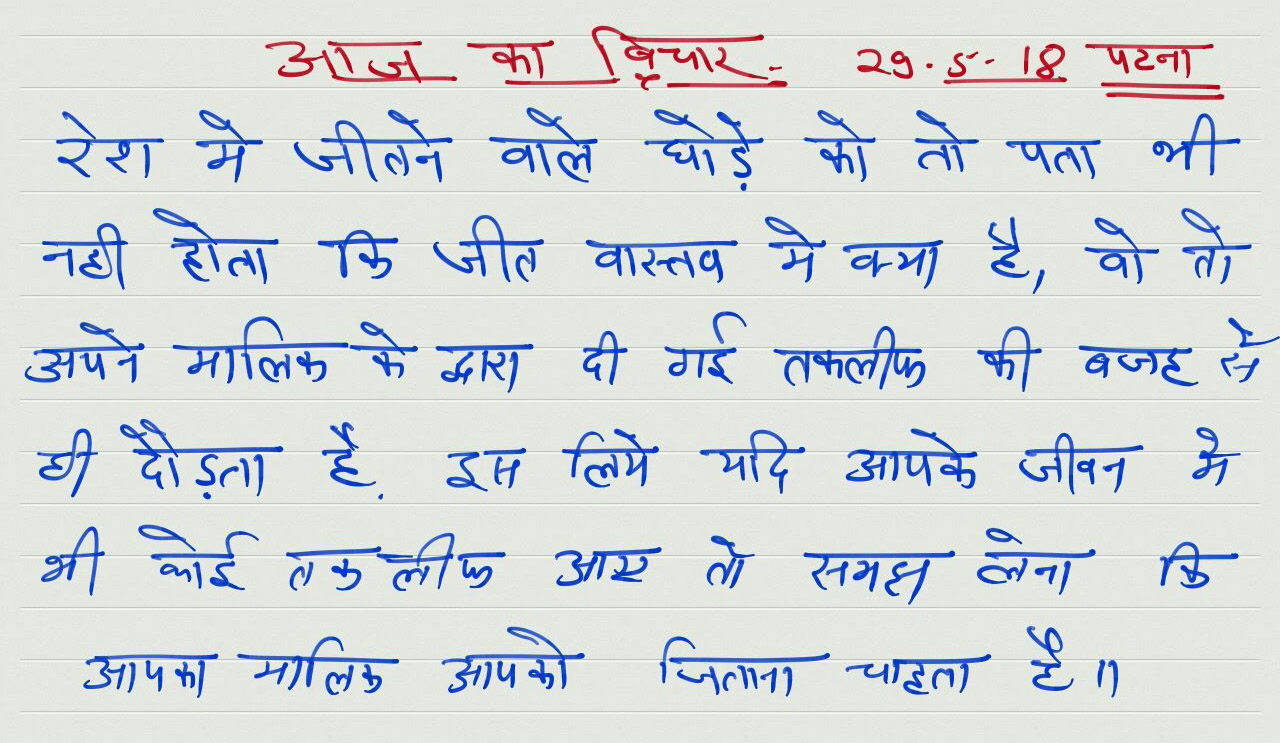 आज का विचार:- 29.5.18 पटना
रेश मे जीतने वाले घोड़े को तो पता भी
नही होता कि जीत वास्तव मे क्या है, वो तो
अपने मालिक के द्वारा दी गई तकलीफ की वजह से
ही दौड़ता है. इस लिये यदि आपके जीवन मे
भी कोई तकलीफ आए तो समझ लेना कि
आपका मालिक आपको जिताना चाहता है॥